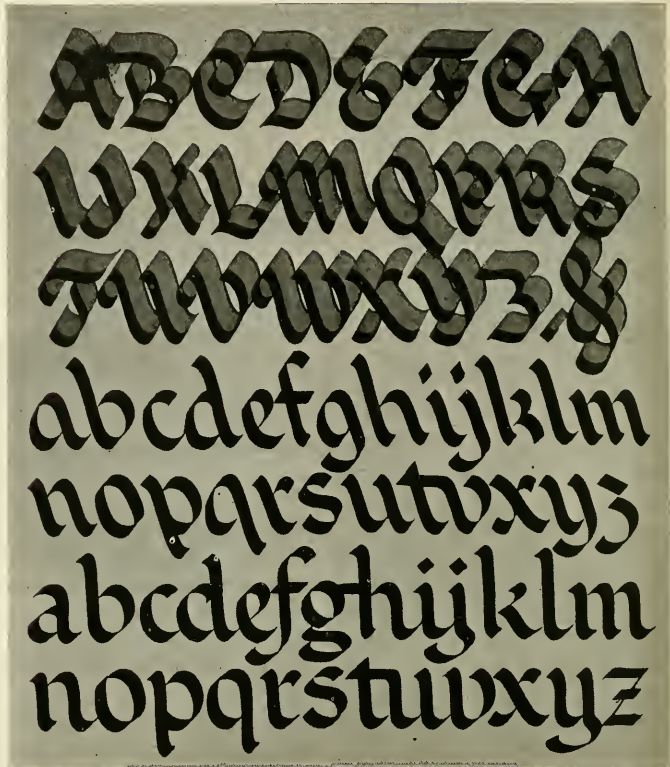 ABCDEFGH
IJKLMQPRS
TUVWXYZ.&
abcdefghijklm
nopqrsutvxyz
abcdefghijklm
nopqrstuvxyz